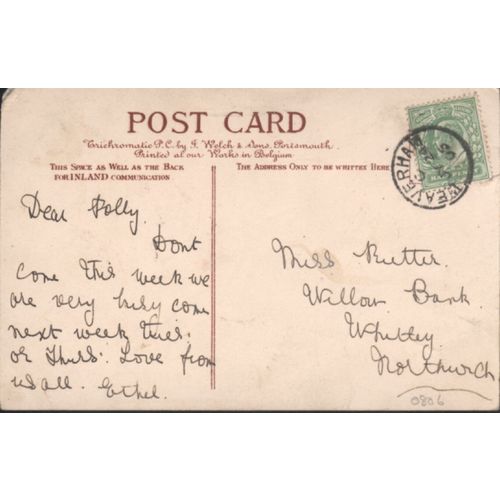 POST CARD
Trichromatic P.C. by J. Welch & Sons, Portsmouth.
Printed at our Works in Belgium
THIS SPACE AS WELL AS THE BACK
FOR INLAND COMMUNICATION
THE ADDRESS ONLY TO BE WRITTEN HERE
WEAVERHAM
Dear Polly.
Dont
come this week we
are very busy come
next week Tues.
or Thurs. Love from
us all. Ethel.
Miss Rutter.
Willow Bank.
Whitley.
Northwich
0806